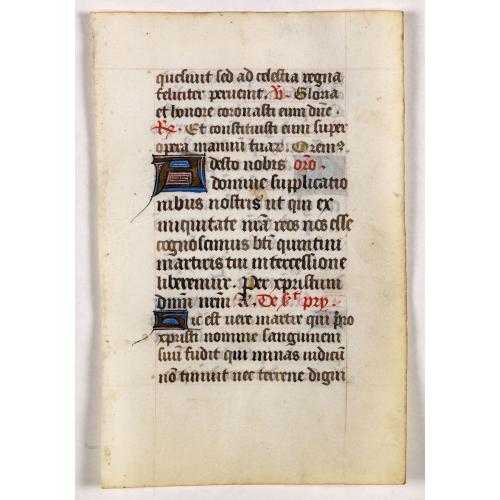 quesiuit sed ad celestia regna
feliciter peruenit. V. Gloria
et honore coronasti eum dñe.
R. Et constituisti eum super
opera manuū tuar. Oremꝰ
Adesto nobis oro.
domine supplicatio
nibus nostris ut qui ex
iniquitate nr̃a reos nos esse
cognoscimus bt̃i quintini
martiris tui intercessione
liberemur. Per xpristum
dnm̄ nr̄m &. De
Hic est uere martir qui pro
xpristi nomine sanguinem
suū fudit qui minas iudicū
nō timuit nec terrene digni